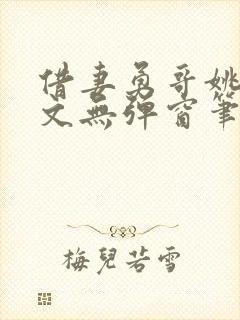 借妻勇哥姚
文無彈窗筆
梅兒若雪